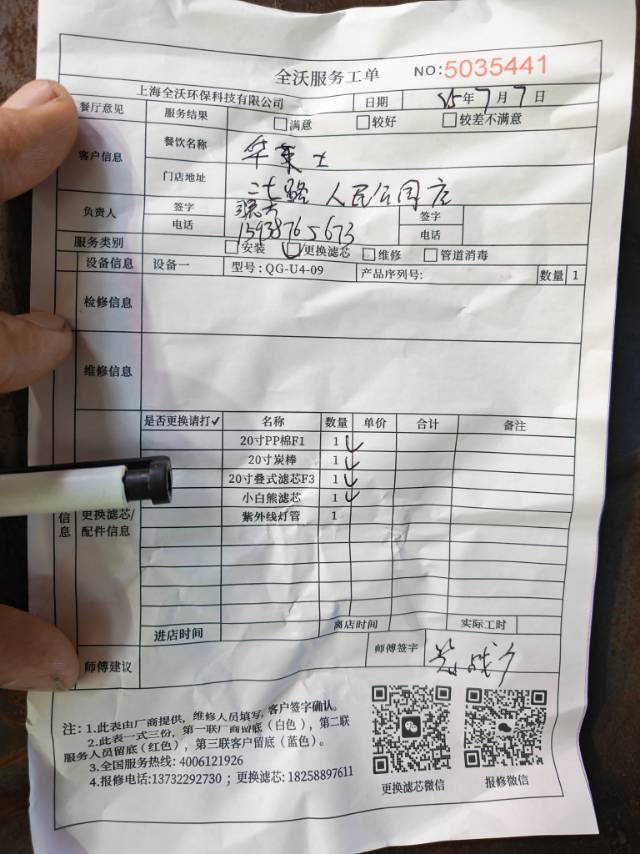 全沃服务工单 NO:5035441
上海全沃环保科技有限公司 日期 25年7月7日
餐厅意见 服务结果 满意 较好 较差不满意
客户信息 餐饮名称 华莱士
门店地址 二七路人民公园店
负责人 签字 签字
电话 15938765673 电话
服务类别 安装 更换滤芯 维修 管道消毒
设备信息 设备一 型号:QG-U4-09 产品序列号: 数量 1
检修信息
维修信息
是否更换请打✓ 名称 数量 单价 合计 备注
20寸PP棉F1 1 ✓
20寸炭棒 1 ✓
20寸叠式滤芯F3 1 ✓
小白熊滤芯 1 ✓
紫外线灯管 1
信息 更换滤芯/配件信息
进店时间 离店时间 实际工时
师傅建议 师傅签字
注:1.此表由厂商提供,维修人员填写,客户签字确认。
2.此表一式三份,第一联厂商留底(白色),第二联
服务人员留底(红色),第三联客户留底(蓝色)。
3.全国服务热线:4006121926
4.报修电话:13732292730;更换滤芯:18258897611
更换滤芯微信 报修微信